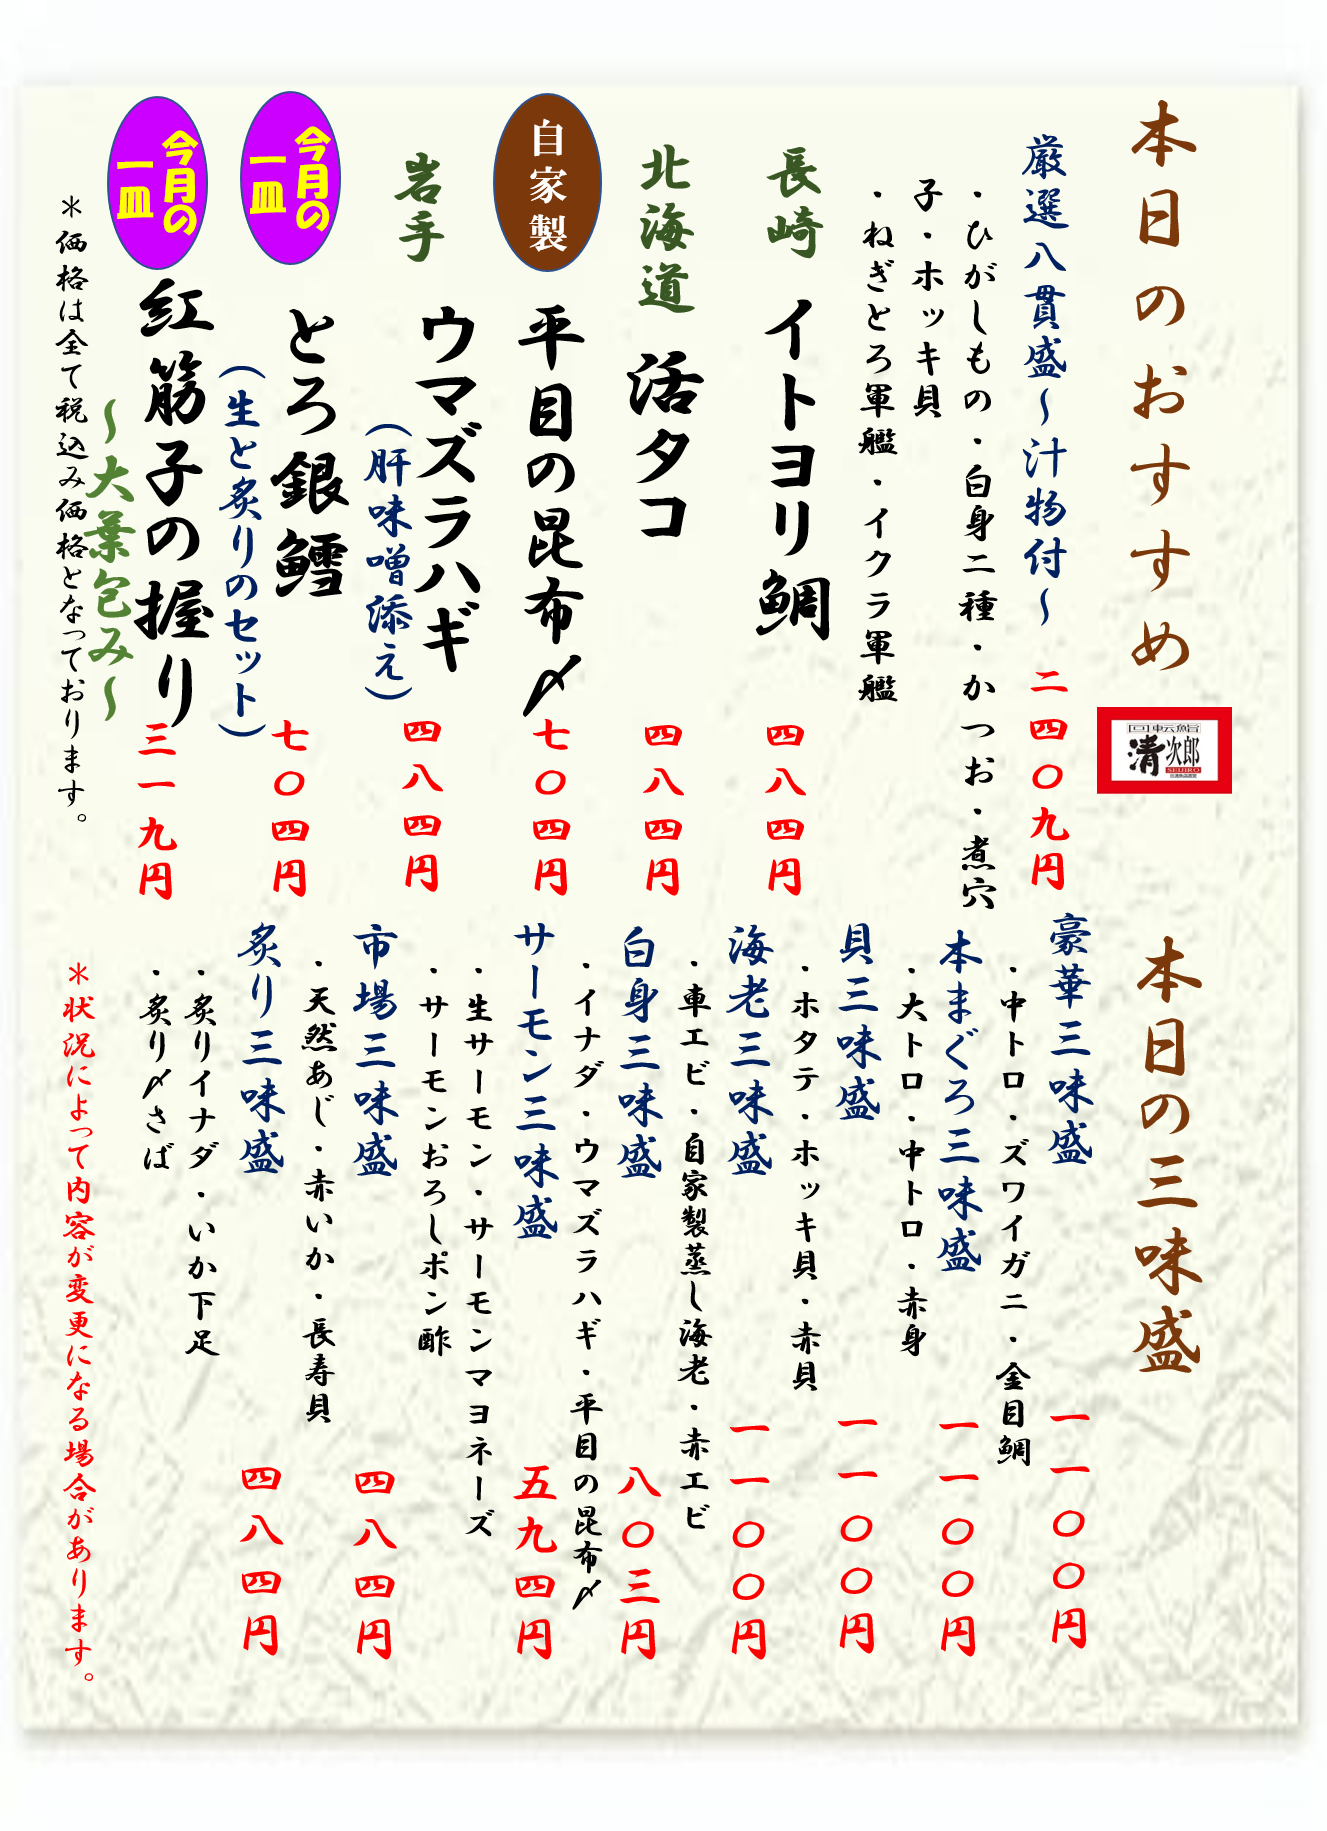 本日のおすすめ
回転鮨
清次郎
SEIJIRO
厳選八貫盛～汁物付～ 二四〇九円
・ひがしもの・白身二種・かつお・煮穴
子・ホッキ貝
・ねぎとろ軍艦・イクラ軍艦
長崎 イトヨリ鯛 四八四円
北海道 活タコ 四八四円
自家製 平目の昆布〆 七〇四円
岩手 ウマズラハギ 四八四円
（肝味噌添え）
今月の
一皿
とろ銀鱈 七〇四円
（生と炙りのセット）
今月の
一皿
紅筋子の握り 三一九円
～大葉包み～
＊価格は全て税込み価格となっております。
本日の三味盛
豪華三味盛 一一〇〇円
・中トロ・ズワイガニ・金目鯛
本まぐろ三味盛 一一〇〇円
・大トロ・中トロ・赤身
貝三味盛 一一〇〇円
・ホタテ・ホッキ貝・赤貝
海老三味盛 一一〇〇円
・車エビ・自家製蒸し海老・赤エビ
白身三味盛 八〇三円
・イナダ・ウマズラハギ・平目の昆布〆
サーモン三味盛 五九四円
・生サーモン・サーモンマヨネーズ
・サーモンおろしポン酢
市場三味盛 四八四円
・天然あじ・赤いか・長寿貝
炙り三味盛 四八四円
・炙りイナダ・いか下足
・炙り〆さば
＊状況によって内容が変更になる場合があります。